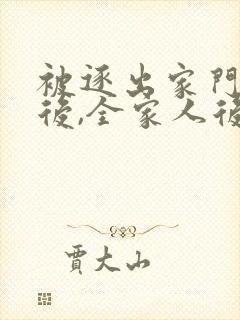 被逐出家門
後,全家人後
賈大山